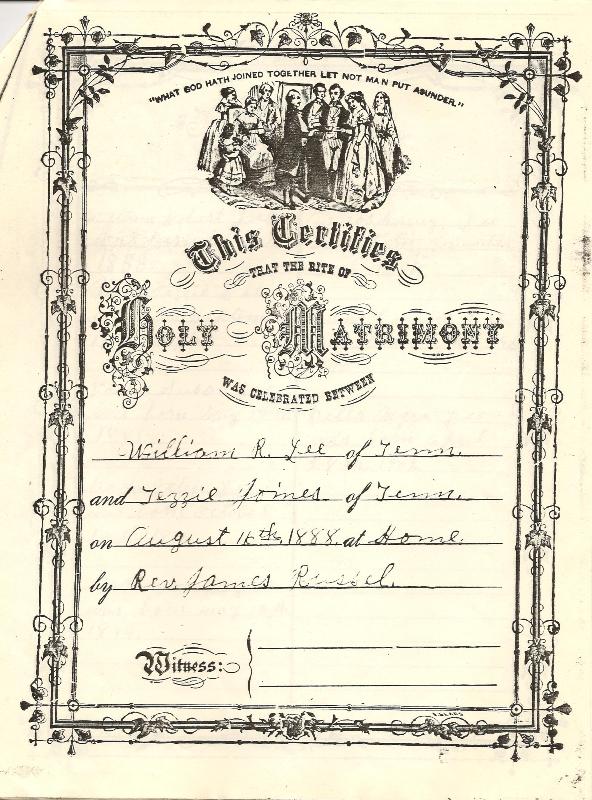 "WHAT GOD HATH JOINED TOGETHER LET NOT MAN PUT ASUNDER."
This Certifies
THAT THE RITE OF
HOLY MATRIMONY
WAS CELEBRATED BETWEEN
William R. Lee of Tenn.
and Tezzie Joines of Tenn.
on August 16th, 1888 at Home
by Rev. James Russel.
Witness: